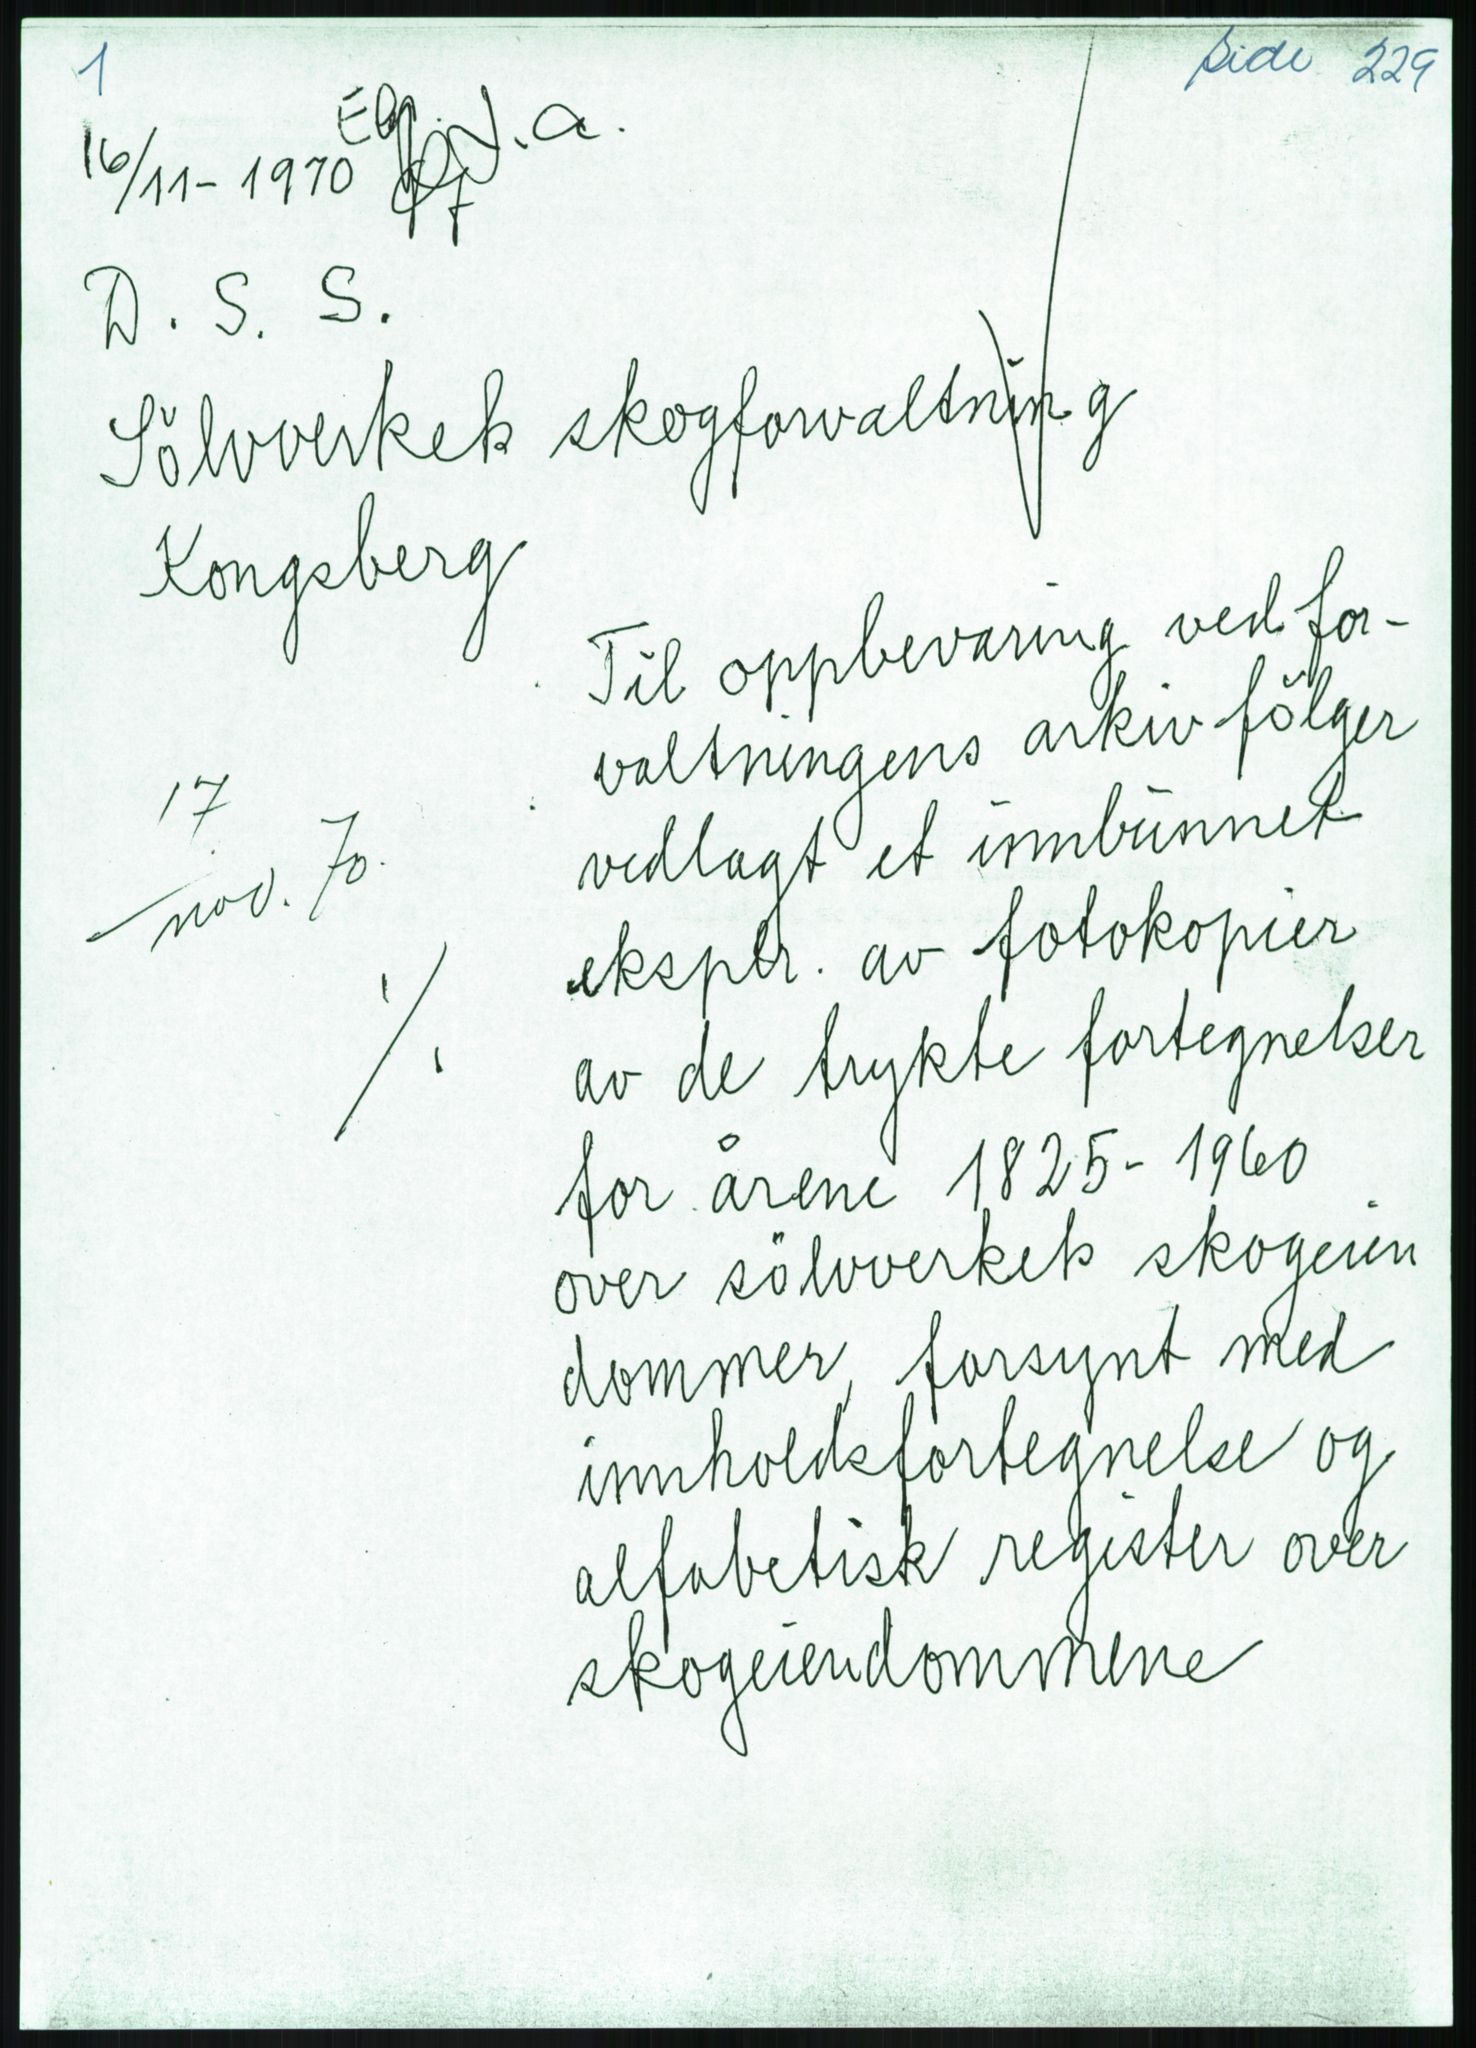 1
Side 229
16/11-1970
D. S. S.
Sölvverkets skogforvaltning
Kongsberg
Til oppbevaring ved for-
valtningens arkiv fölger
vedlagt et innbunnet
eksplr. av fotokopier
av de trykte fortegnelser
for årene 1825-1960
over sölvverkets skogeien
dommer, forsynt med
innholdsfortegnelse og
alfabetisk register over
skogeiendommene
17
nov. 70.
·/.